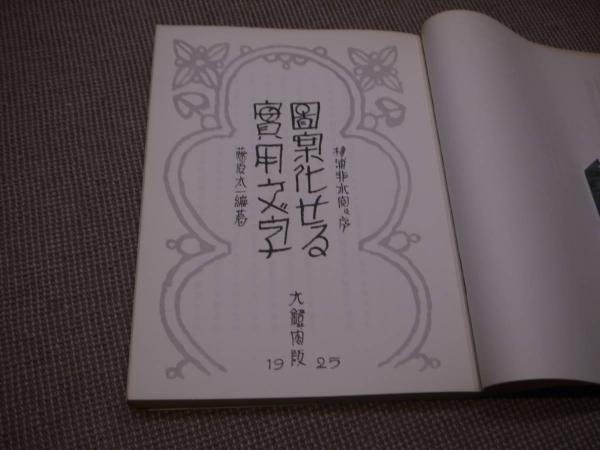 杉浦非水図案序
圖案化せる
實用文字
藤原太一編著
大鐙閣版
1925